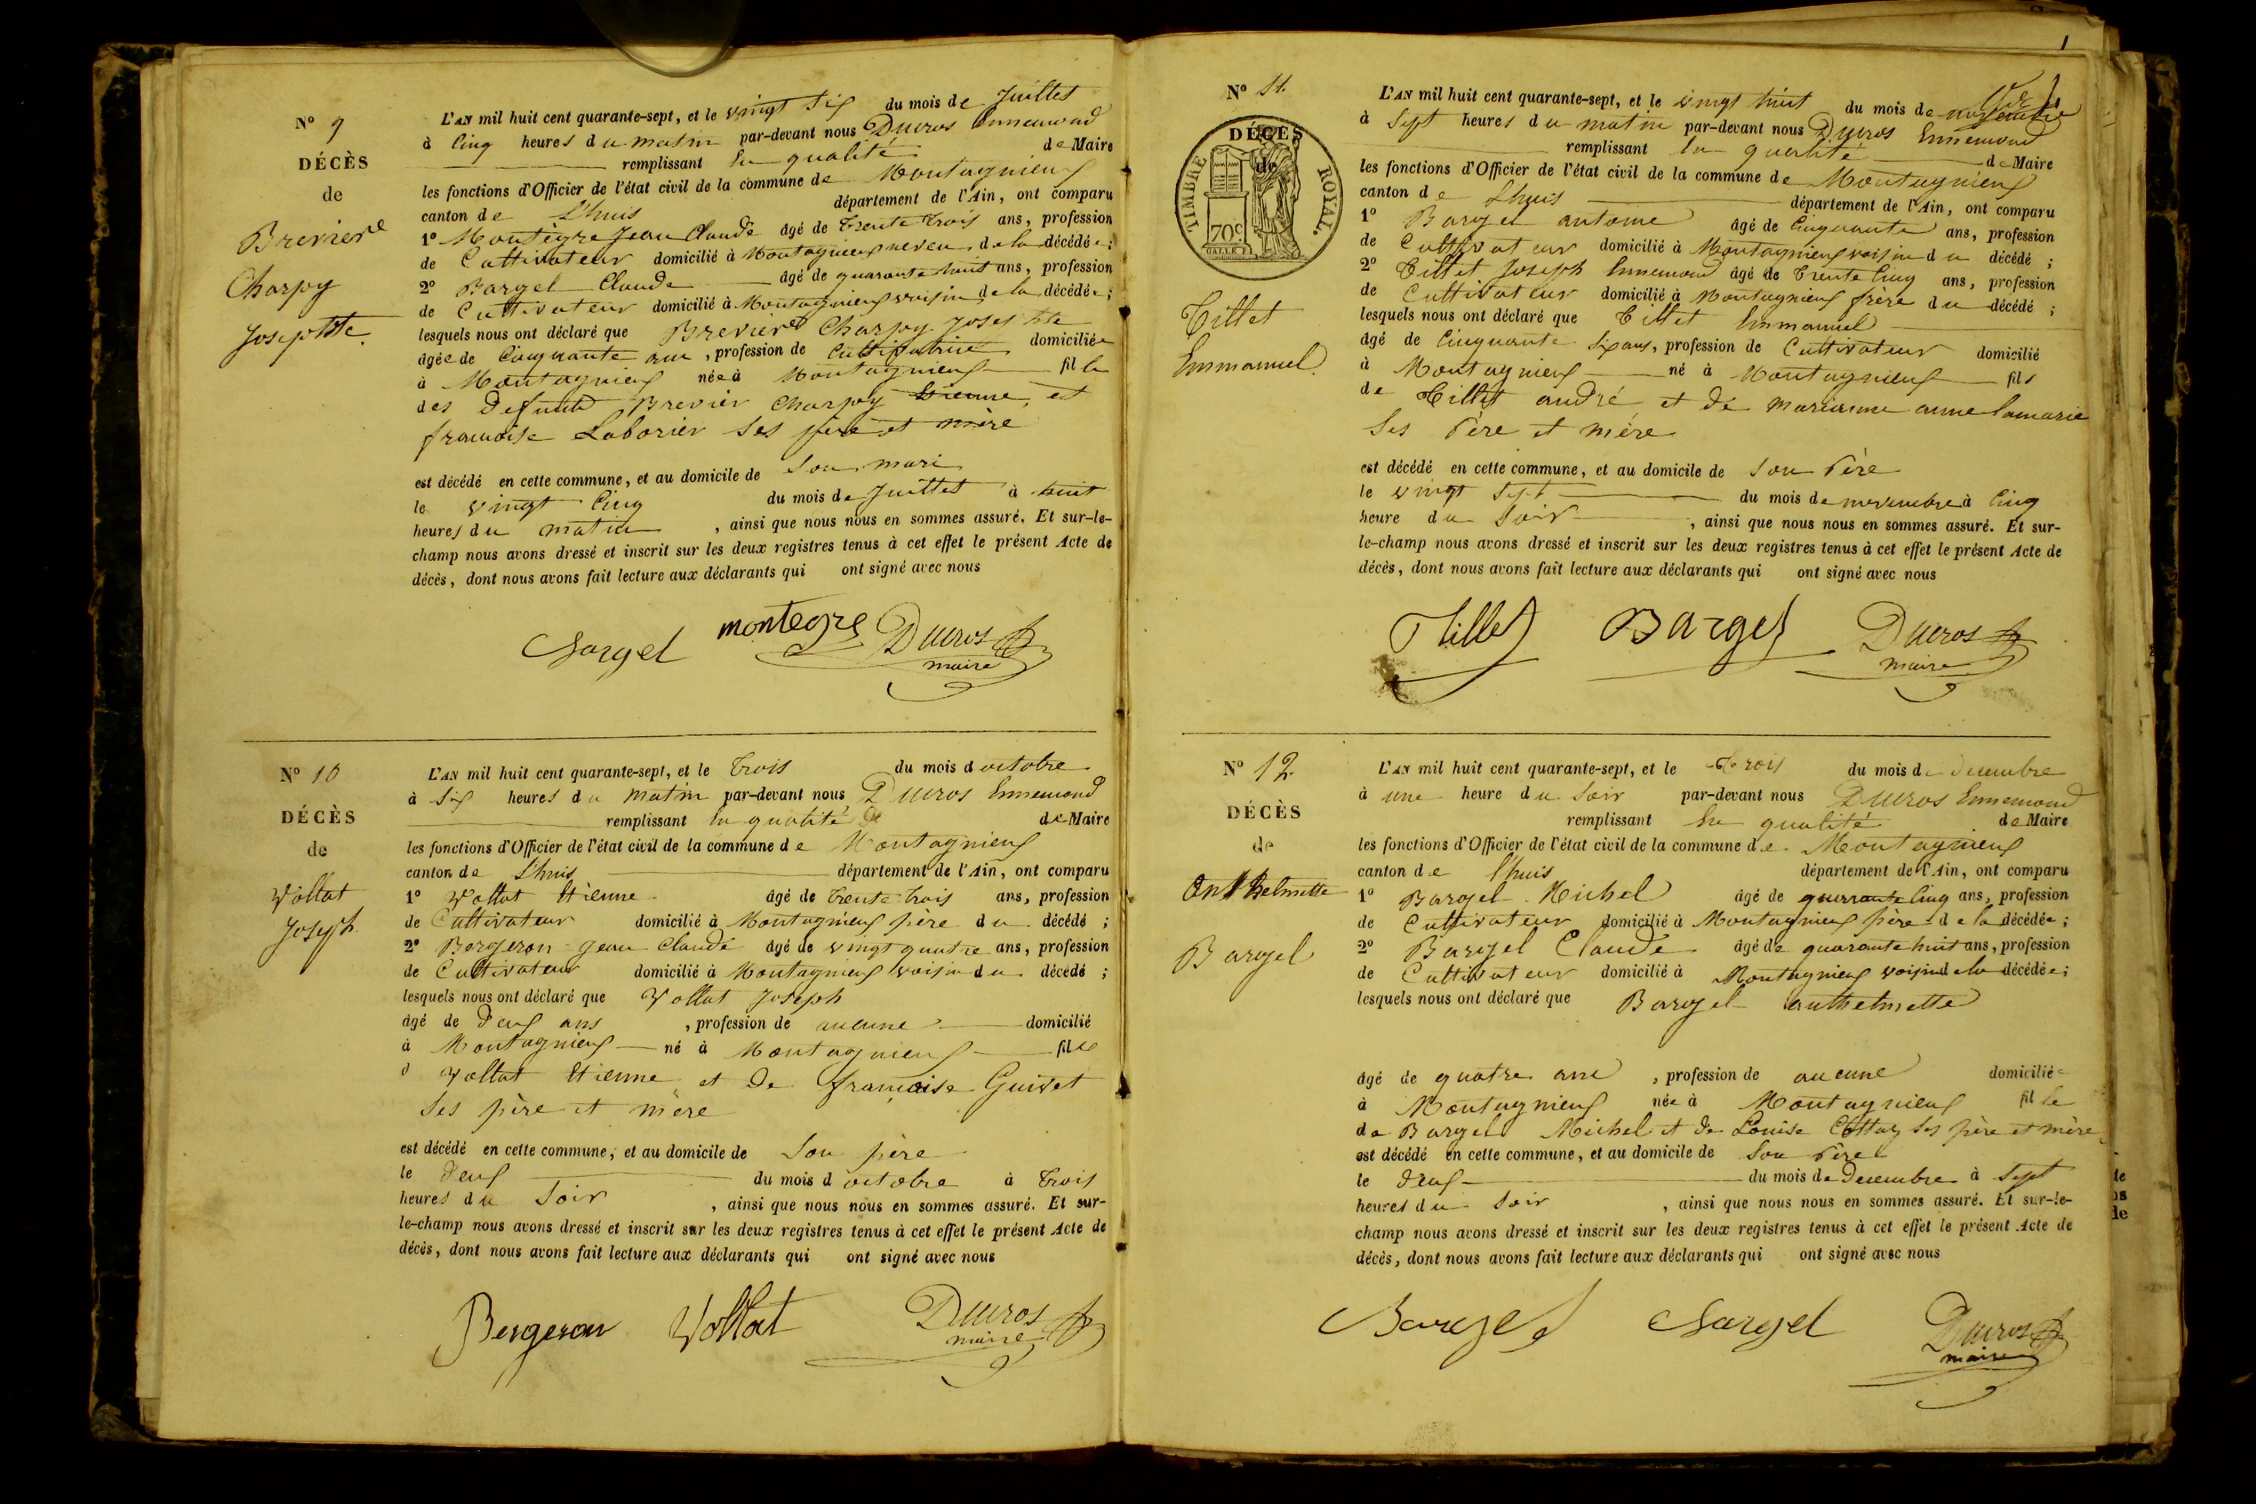 Nº 9
DÉCÈS
de
Brevier
Charpy
Josephte
L'AN mil huit cent quarante-sept, et le vingt six du mois de Juillet
à Cinq heures du matin par-devant nous Ducros Ennemond
remplissant en qualité de Maire
les fonctions d'Officier de l'état civil de la commune de Montagnieux
canton de Lhuis département de l'Ain, ont comparu
1º Montègre Jean Claude âgé de trente trois ans, profession
de Cultivateur domicilié à Montagnieux neveu de la décédée;
2º Bargel Claude âgé de quarante huit ans, profession
de Cultivateur domicilié à Montagnieux voisin de la décédée;
lesquels nous ont déclaré que Brevier Charpy Josephte
âgée de Cinquante ans, profession de Cultivatrice domiciliée
à Montagnieux née à Montagnieux fille
des défunts Brevier Charpy Etienne et
francoise Laborier ses père et mère
est décédé en cette commune, et au domicile de Son mari
le vingt Cinq du mois de Juillet à huit
heures du matin, ainsi que nous nous en sommes assuré. Et sur-le-
champ nous avons dressé et inscrit sur les deux registres tenus à cet effet le présent Acte de
décès, dont nous avons fait lecture aux déclarants qui ont signé avec nous
Bargel montegre Ducros
maire
Nº 10
DÉCÈS
de
Vollat
Joseph
L'AN mil huit cent quarante-sept, et le trois du mois d octobre
à Six heures du matin par-devant nous Ducros Ennemond
remplissant en qualité de de Maire
les fonctions d'Officier de l'état civil de la commune de Montagnieux
canton de Lhuis département de l'Ain, ont comparu
1º Vollat Etienne âgé de trente trois ans, profession
de Cultivateur domicilié à Montagnieux père du décédé;
2º Bergeron Jean Claude âgé de vingt quatre ans, profession
de Cultivateur domicilié à Montagnieux voisin du décédé;
lesquels nous ont déclaré que Vollat Joseph
âgé de deux ans, profession de aucune domicilié
à Montagnieux né à Montagnieux fils
d Vollat Etienne et de francoise Guivet
Ses père et mère
est décédé en cette commune, et au domicile de Son père
le deux du mois d octobre à trois
heures du Soir, ainsi que nous nous en sommes assuré. Et sur-
le-champ nous avons dressé et inscrit sur les deux registres tenus à cet effet le présent Acte de
décès, dont nous avons fait lecture aux déclarants qui ont signé avec nous
Bergeron Vollat Ducros
maire
Nº 11.
DÉCÈS
de
TIMBRE ROYAL.
70c
Tillet
Emmanuel
L'AN mil huit cent quarante-sept, et le vingt huit du mois de novembre
à Sept heures du matin par-devant nous Ducros Ennemond
remplissant en qualité de Maire
les fonctions d'Officier de l'état civil de la commune de Montagnieux
canton de Lhuis département de l'Ain, ont comparu
1º Bargel antoine âgé de Cinquante ans, profession
de Cultivateur domicilié à Montagnieux voisin du décédé;
2º Tillet Joseph Ennemond âgé de trente Cinq ans, profession
de Cultivateur domicilié à Montagnieux frère du décédé;
lesquels nous ont déclaré que Tillet Emmanuel
âgé de Cinquante Six ans, profession de Cultivateur domicilié
à Montagnieux né à Montagnieux fils
de Tillet andré et de marianne anne
Ses Père et mère
est décédé en cette commune, et au domicile de Son Père
le vingt Sept du mois de novembre à Cinq
heure du Soir, ainsi que nous nous en sommes assuré. Et sur-
le-champ nous avons dressé et inscrit sur les deux registres tenus à cet effet le présent Acte de
décès, dont nous avons fait lecture aux déclarants qui ont signé avec nous
Tillet Bargel Ducros
maire
Nº 12.
DÉCÈS
de
Anthelmette
Bargel
L'AN mil huit cent quarante-sept, et le trois du mois de decembre
à une heure du Soir par-devant nous Ducros Ennemond
remplissant en qualité de Maire
les fonctions d'Officier de l'état civil de la commune de Montagnieux
canton de Lhuis département de l'Ain, ont comparu
1º Bargel Michel âgé de quarante Cinq ans, profession
de Cultivateur domicilié à Montagnieux père de la décédée;
2º Bargel Claude âgé de quarante huit ans, profession
de Cultivateur domicilié à Montagnieux voisin de la décédée;
lesquels nous ont déclaré que Bargel anthelmette
âgé de quatre ans, profession de aucune domiciliée
à Montagnieux née à Montagnieux fille
de Bargel Michel et de Louise Cottaz Ses père et mère
est décédé en cette commune, et au domicile de Son Père
le deux du mois de Decembre à Sept
heures du Soir, ainsi que nous nous en sommes assuré. Et sur-le-
champ nous avons dressé et inscrit sur les deux registres tenus à cet effet le présent Acte de
décès, dont nous avons fait lecture aux déclarants qui ont signé avec nous
Bargel Bargel Ducros
maire